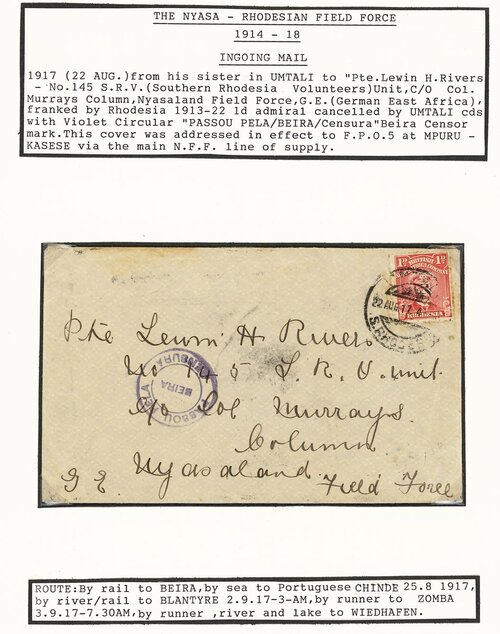 THE NYASA - RHODESIAN FIELD FORCE
1914 - 18
INGOING MAIL
1917 (22 AUG.)from his sister in UMTALI to "Pte.Lewin H.Rivers
- No.145 S.R.V.(Southern Rhodesia Volunteers)Unit,C/O Col.
Murrays Column,Nyasaland Field Force,G.E.(German East Africa),
franked by Rhodesia 1913-22 1d admiral cancelled by UMTALI cds
with Violet Circular "PASSOU PELA/BEIRA/Censura"Beira Censor
mark.This cover was addressed in effect to F.P.O.5 at MPURU -
KASESE via the main N.F.F. line of supply.
1D BRITISH 1D
RHODESIA
22 AUG 17
Pte Lewin H Rivers
No 145 S. R. V. unit
c/o Col Murrays
Column
Nyasaland Field Force
G E.
PASSOU PELA
BEIRA
CENSURA
ROUTE:By rail to BEIRA,by sea to Portuguese CHINDE 25.8 1917,
by river/rail to BLANTYRE 2.9.17-3-AM,by runner to ZOMBA
3.9.17-7.30AM,by runner ,river and lake to WIEDHAFEN.